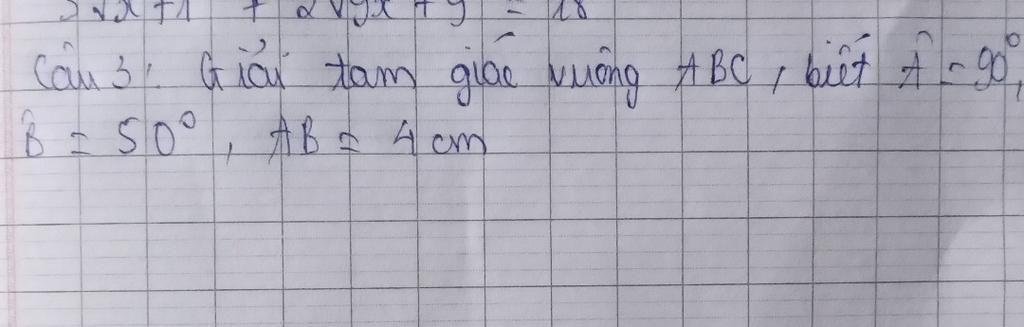 Câu 3: Giải tam giác vuông ABC, biết Â = 90°,
B̂ = 50°, AB = 4 cm